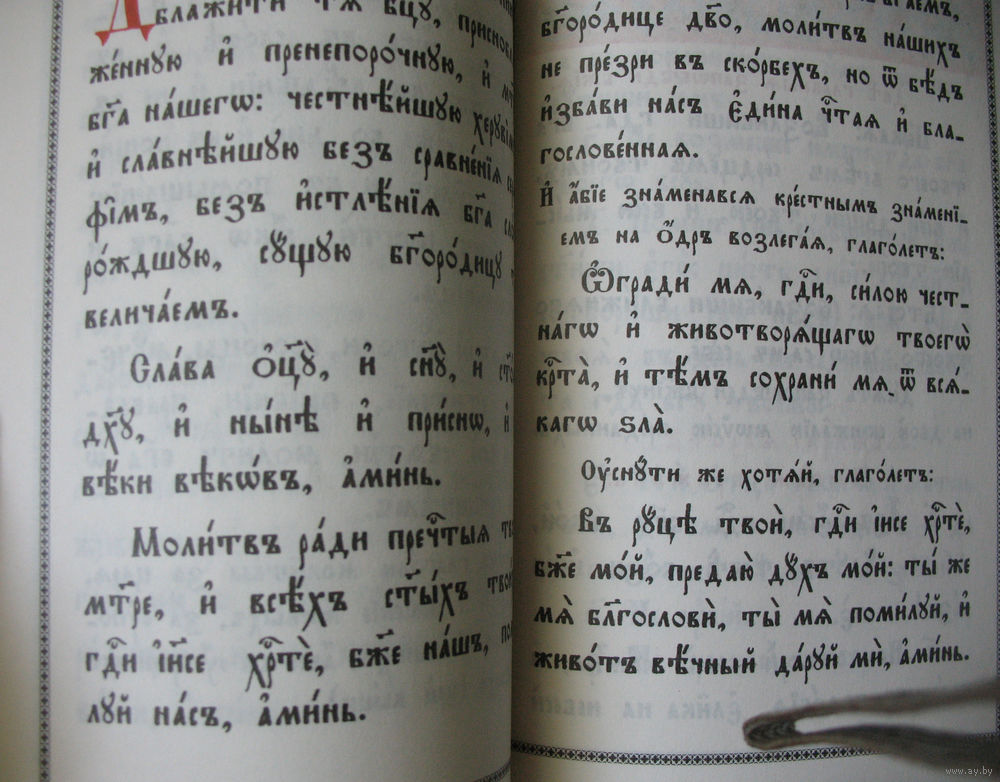 блажити тѧ бц҃у, присно
же́ннꙋю и҆ пренепоро́чнꙋю, и҆
бг҃а на́шегѡ: честнѣ́йшꙋю херꙋві
и҆ сла́внѣйшꙋю без̾ сравне́нїѧ
фі́мъ, без̾ и҆стлѣ́нїѧ бг҃а
ро́ждшꙋю, сꙋ́щꙋю бг҃оро́дицꙋ
велича́емъ.
Сла́ва ѻ҆ц҃ꙋ̀, и҆ сн҃ꙋ, и҆
дх҃ꙋ, и҆ ны́нѣ и҆ при́снѡ, и҆
вѣ́ки вѣкѡ́въ, а҆ми́нь.
Моли́твъ ра́ди преч҇тыѧ
мт҃ре, и҆ всѣ́хъ ст҃ы́хъ
гд҇и і҆и҃се хрⷭ҇тѐ, бж҃е на́шъ,
лꙋй на́съ, а҆ми́нь.
бг҃оро́дице дв҃о, моли́твъ на́шихъ
не пре́зри въ ско́рбехъ, но ѿ бѣ́дъ
и҆зба́ви на́съ є҆ди́на чⷭ҇таѧ и҆ бла-
гослове́ннаѧ.
И҆ а҆́бїе зна́менавсѧ кре́стнымъ зна́менї-
емъ на ѻ҆́дръ возлега́ѧ, глаго́летъ:
Ѡ҆гради́ мѧ, гд҇и, си́лою чест-
на́гѡ и҆ животворѧ́щагѡ твоегѡ̀
крⷭ҇та̀, и҆ тѣ́мъ сохрани́ мѧ ѿ всѧ́-
кагѡ ѕла̀.
Оу҆снꙋ́ти же хотѧ́й, глаго́летъ:
Въ рꙋ́цѣ твоѝ, гд҇и і҆и҃се хрⷭ҇тѐ,
бж҃е мо́й, предаю̀ дꙋ́хъ мо́й: ты́ же
мѧ̀ бл҃гословѝ, ты̀ мѧ̀ поми́лꙋй, и҆
живо́тъ вѣ́чный да́рꙋй мѝ, а҆ми́нь.
www.ay.by